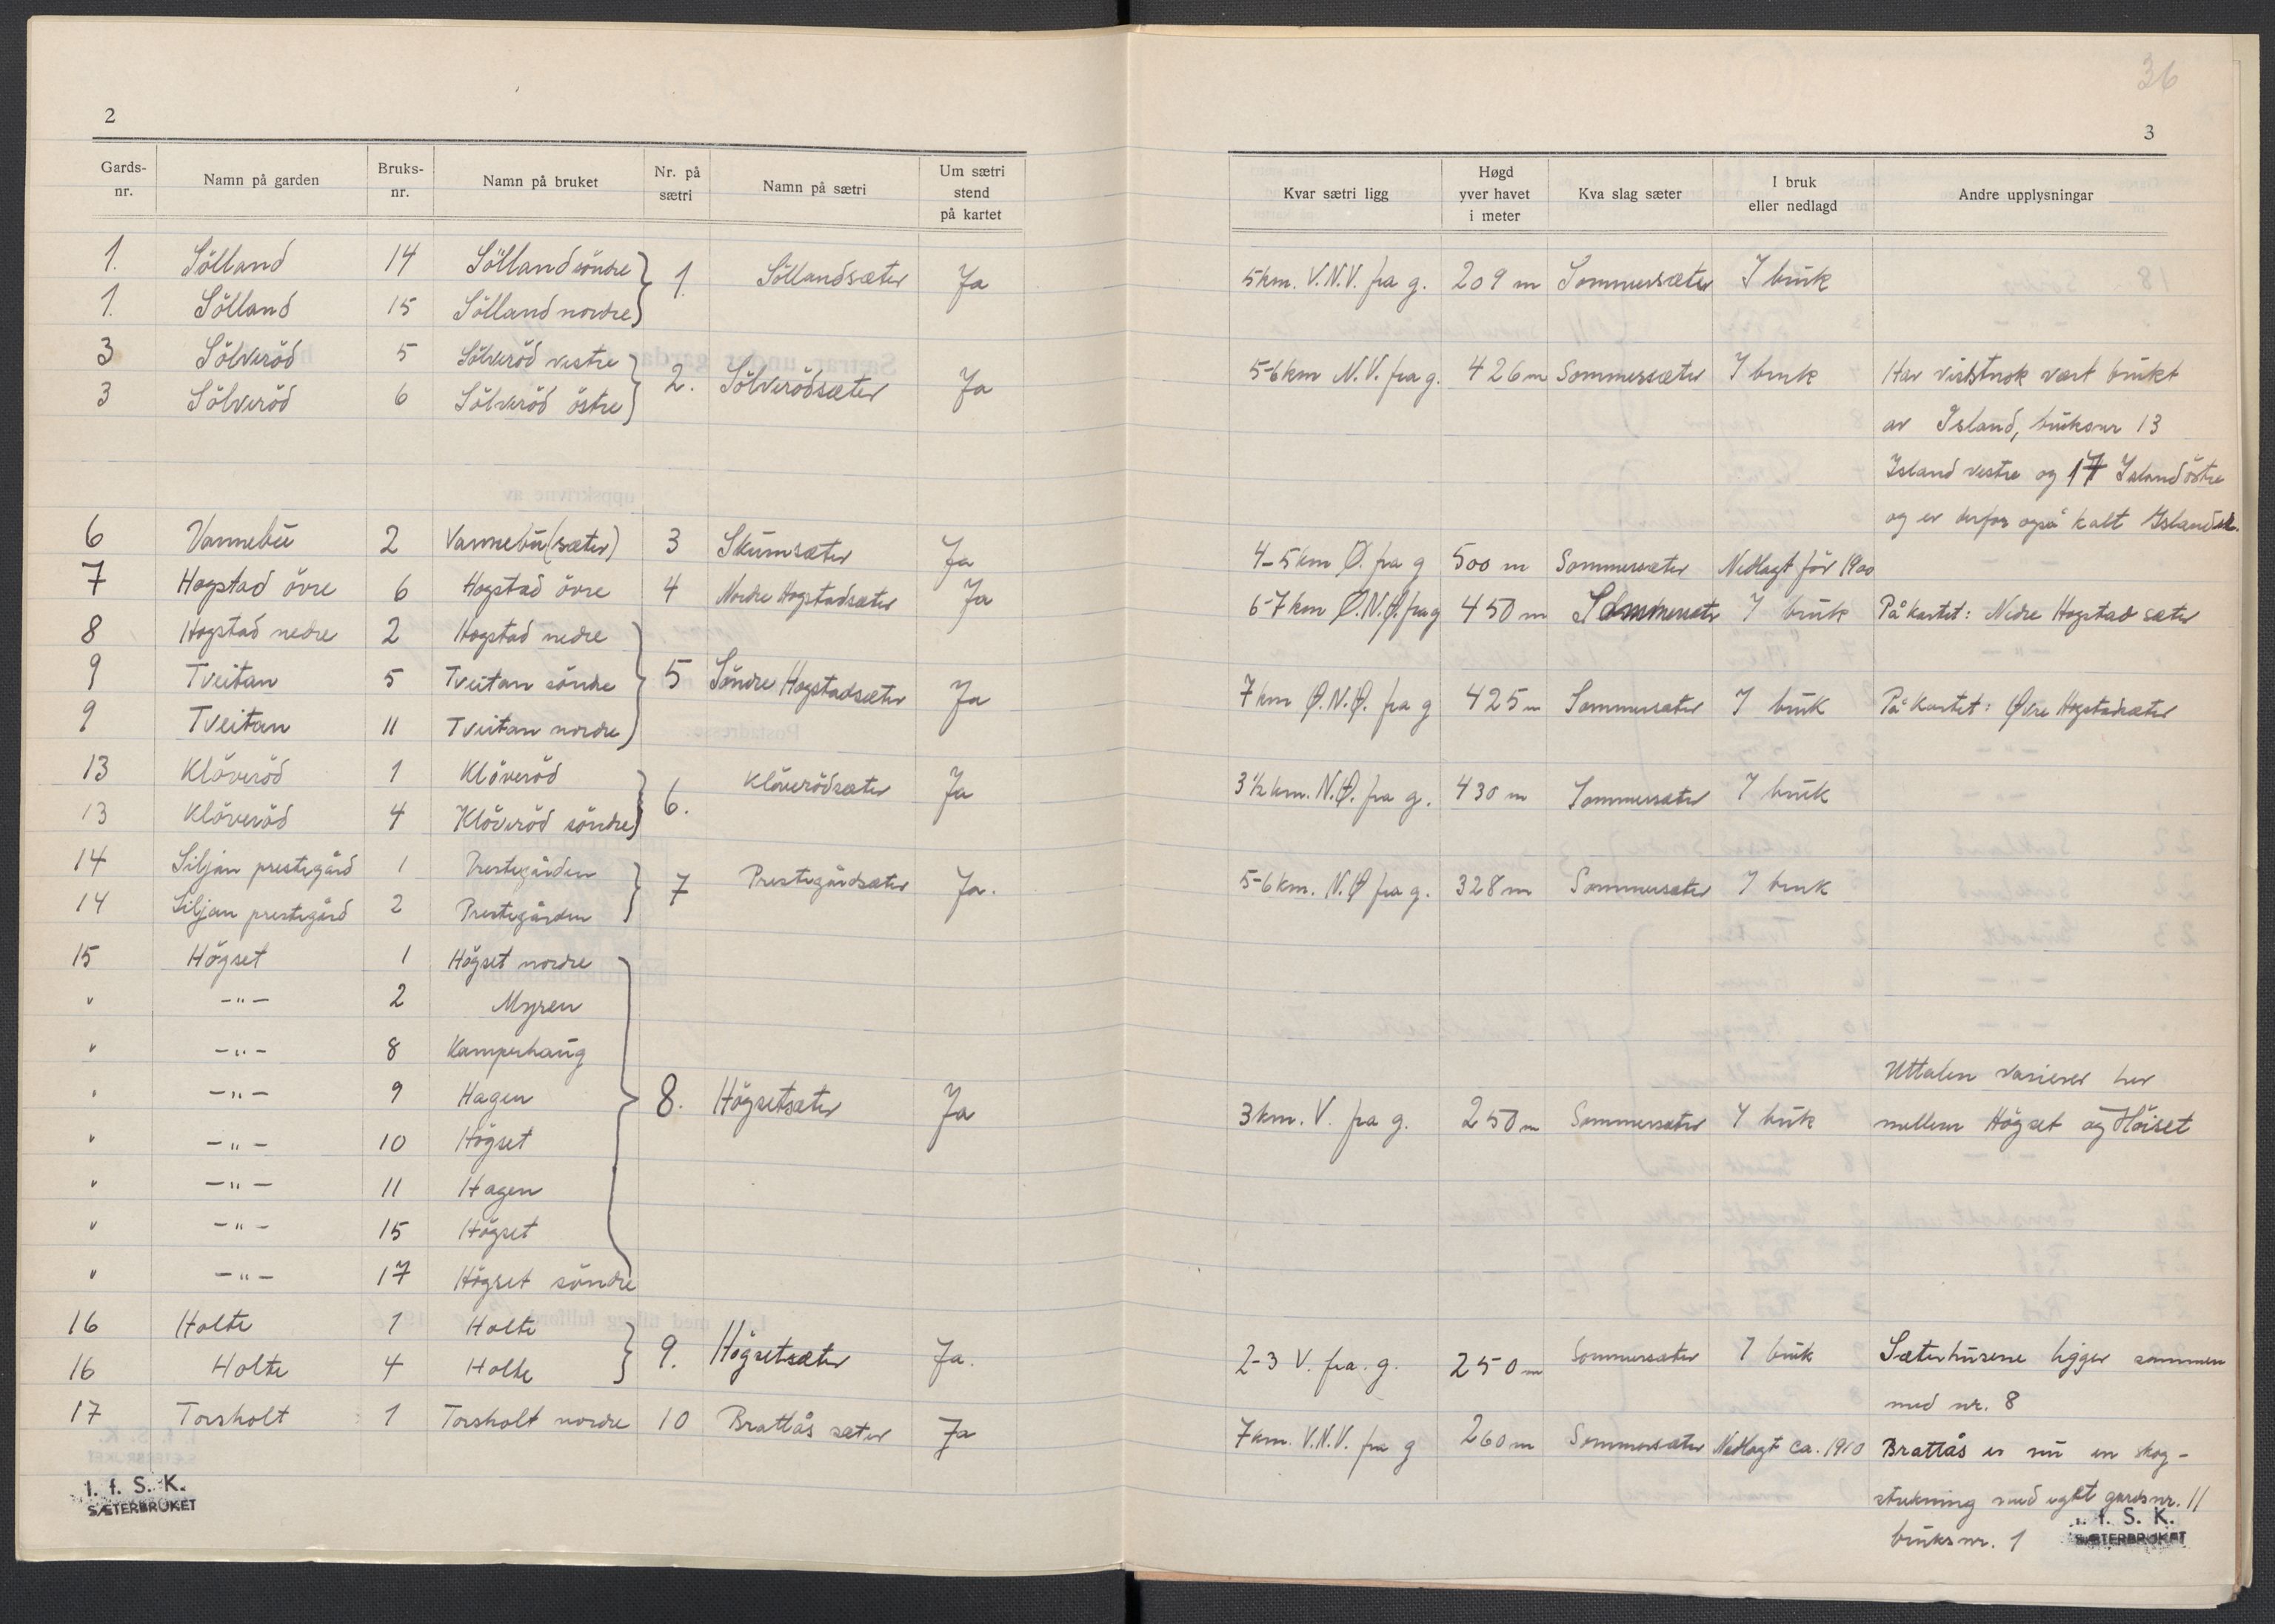 2
Gards-nr. Namn på garden Bruks-nr. Namn på bruket Nr. på sætri Namn på sætri Um sætri stend på kartet
1. Sölland 14 Sölland söndre 1. Söllandsæter Ja
1. Sölland 15 Sölland nordre
3 Sölveröd 5 Sölveröd vestre 2. Sölverödsæter Ja
3 Sölveröd 6 Sölveröd östre
6 Vannebu 2 Vannebu (sæter) 3 Skumsæter Ja
7 Hogstad övre 6 Hogstad övre 4 Nordre Hogstadsæter Ja
8 Hogstad nedre 2 Hogstad nedre
9 Tveitan 5 Tveitan söndre 5 Söndre Hogstadsæter Ja
9 Tveitan 11 Tveitan nordre
13 Klöveröd 1 Klöveröd 6. Klöverödsæter Ja
13 Klöveröd 4 Klöveröd söndre
14 Siljan prestegård 1 Prestegården 7 Prestegårdsæter Ja.
14 Siljan prestegård 2 Prestegården
15 Högset 1 Högset nordre
" -"- 2 Myren
" -"- 8 Kamperhaug
" -"- 9 Hagen 8. Högsetsæter Ja
" -"- 10 Högset
" -"- 11 Hagen
" -"- 15 Högset
" -"- 17 Högset söndre
16 Holte 1 Holte 9. Högsetsæter Ja.
16 Holte 4 Holte
17 Torsholt 1 Torsholt nordre 10 Brattås sæter Ja
I. f. S. K.
SÆTERBRUKET
36
3
Kvar sætri ligg Høgd yver havet i meter Kva slag sæter I bruk eller nedlagd Andre upplysningar
5 km. V.N.V. fra g. 209 m Sommersæter I bruk
5-6 km N.V. fra g. 426 m Sommersæter I bruk Har visstnok vært brukt
av Island, bruksnr 13
Island vestre og 17 Island östre
og er derfor også kalt Islandsæ.
4-5 km Ø. fra g 500 m Sommersæter Nedlagt för 1900
6-7 km Ø.N.Ø. fra g 450 m Sommersæter I bruk På kartet: Nedre Hogstad sæter
7 km Ø.N.Ø. fra g 425 m Sommersæter I bruk På kartet: Øvre Hogstadsæter
3 1/2 km. N.Ø. fra g. 430 m Sommersæter I bruk
5-6 km. N.Ø fra g. 328 m Sommersæter I bruk
Uttalen varierer her
3 km. V. fra g. 250 m Sommersæter I bruk mellem Högset og Höiset
2-3 V. fra. g. 250 m Sommersæter I bruk Sæterhusene ligger sammen
med nr. 8
7 km. V.N.V. fra g 260 m Sommersæter Nedlagt ca. 1910 Brattås er nu en skog-
strekning med eget gardsnr. 11
bruksnr. 1
I. f. S. K.
SÆTERBRUKET